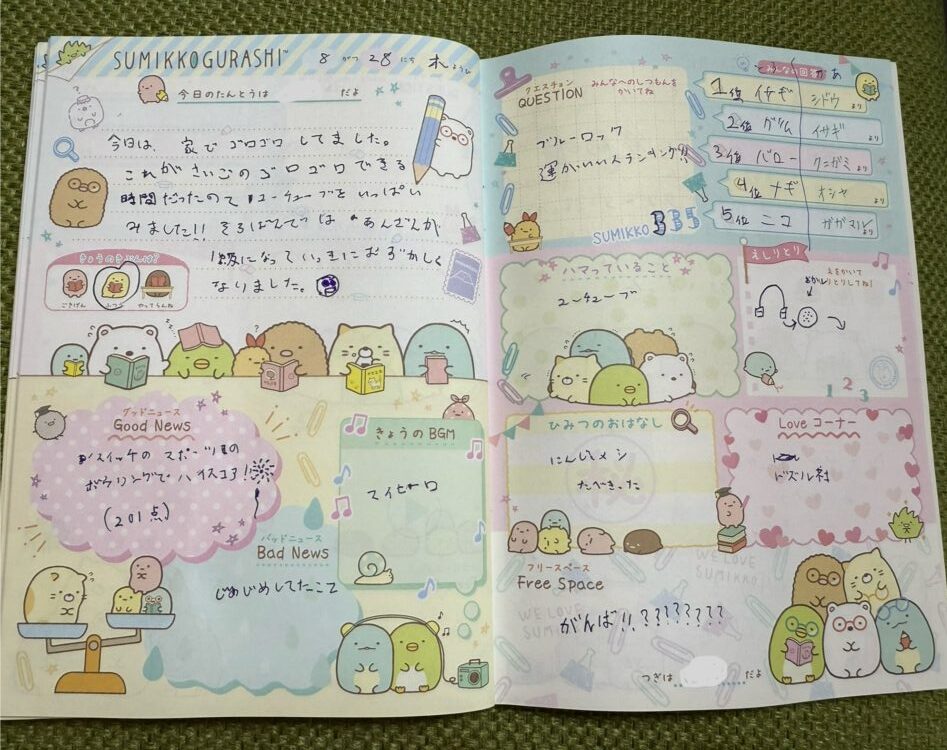 SUMIKKOGURASHI™
8 がつ 28 にち 木 ようび
今日のたんとうは だよ
今日は、家でゴロゴロしてました。
これがさいごのゴロゴロできる
時間だったのでユーチューブをいっぱい
みました!! そろばんで は "あんざんが
1級になっていっきにむずかしく
なりました。
きょうのきぶんは?
ごきげん
ふつう
やってらんね
グッドニュース
Good News
スイッチのスポーツの
ボウリングでハイスコア!!
(201点)
きょうのBGM
マイヒーロ
バッドニュース
Bad News
じめじめしてたこと
クエスチョン
QUESTION
みんなへのしつもんを
かいてね
ブルーロック
運がいい人ランキング!!
SUMIKKO
みんなの回答
1位 イサギ シドウ より
2位 グリム イサギ より
3位 バロー クニガミ より
4位 ナギ オシャ より
5位 ニコ ガガマル より
ハマっていること
ユーチューブ
えしりとり
えをかいて
しりとりしてね!
1 2 3
ひみつのおはなし
にんじんメシ
たべきった
Love コーナー
ドズル社
フリースペース
Free Space
WE LOVE
SUMIKKO!
がんば!!.????????
つぎは だよ